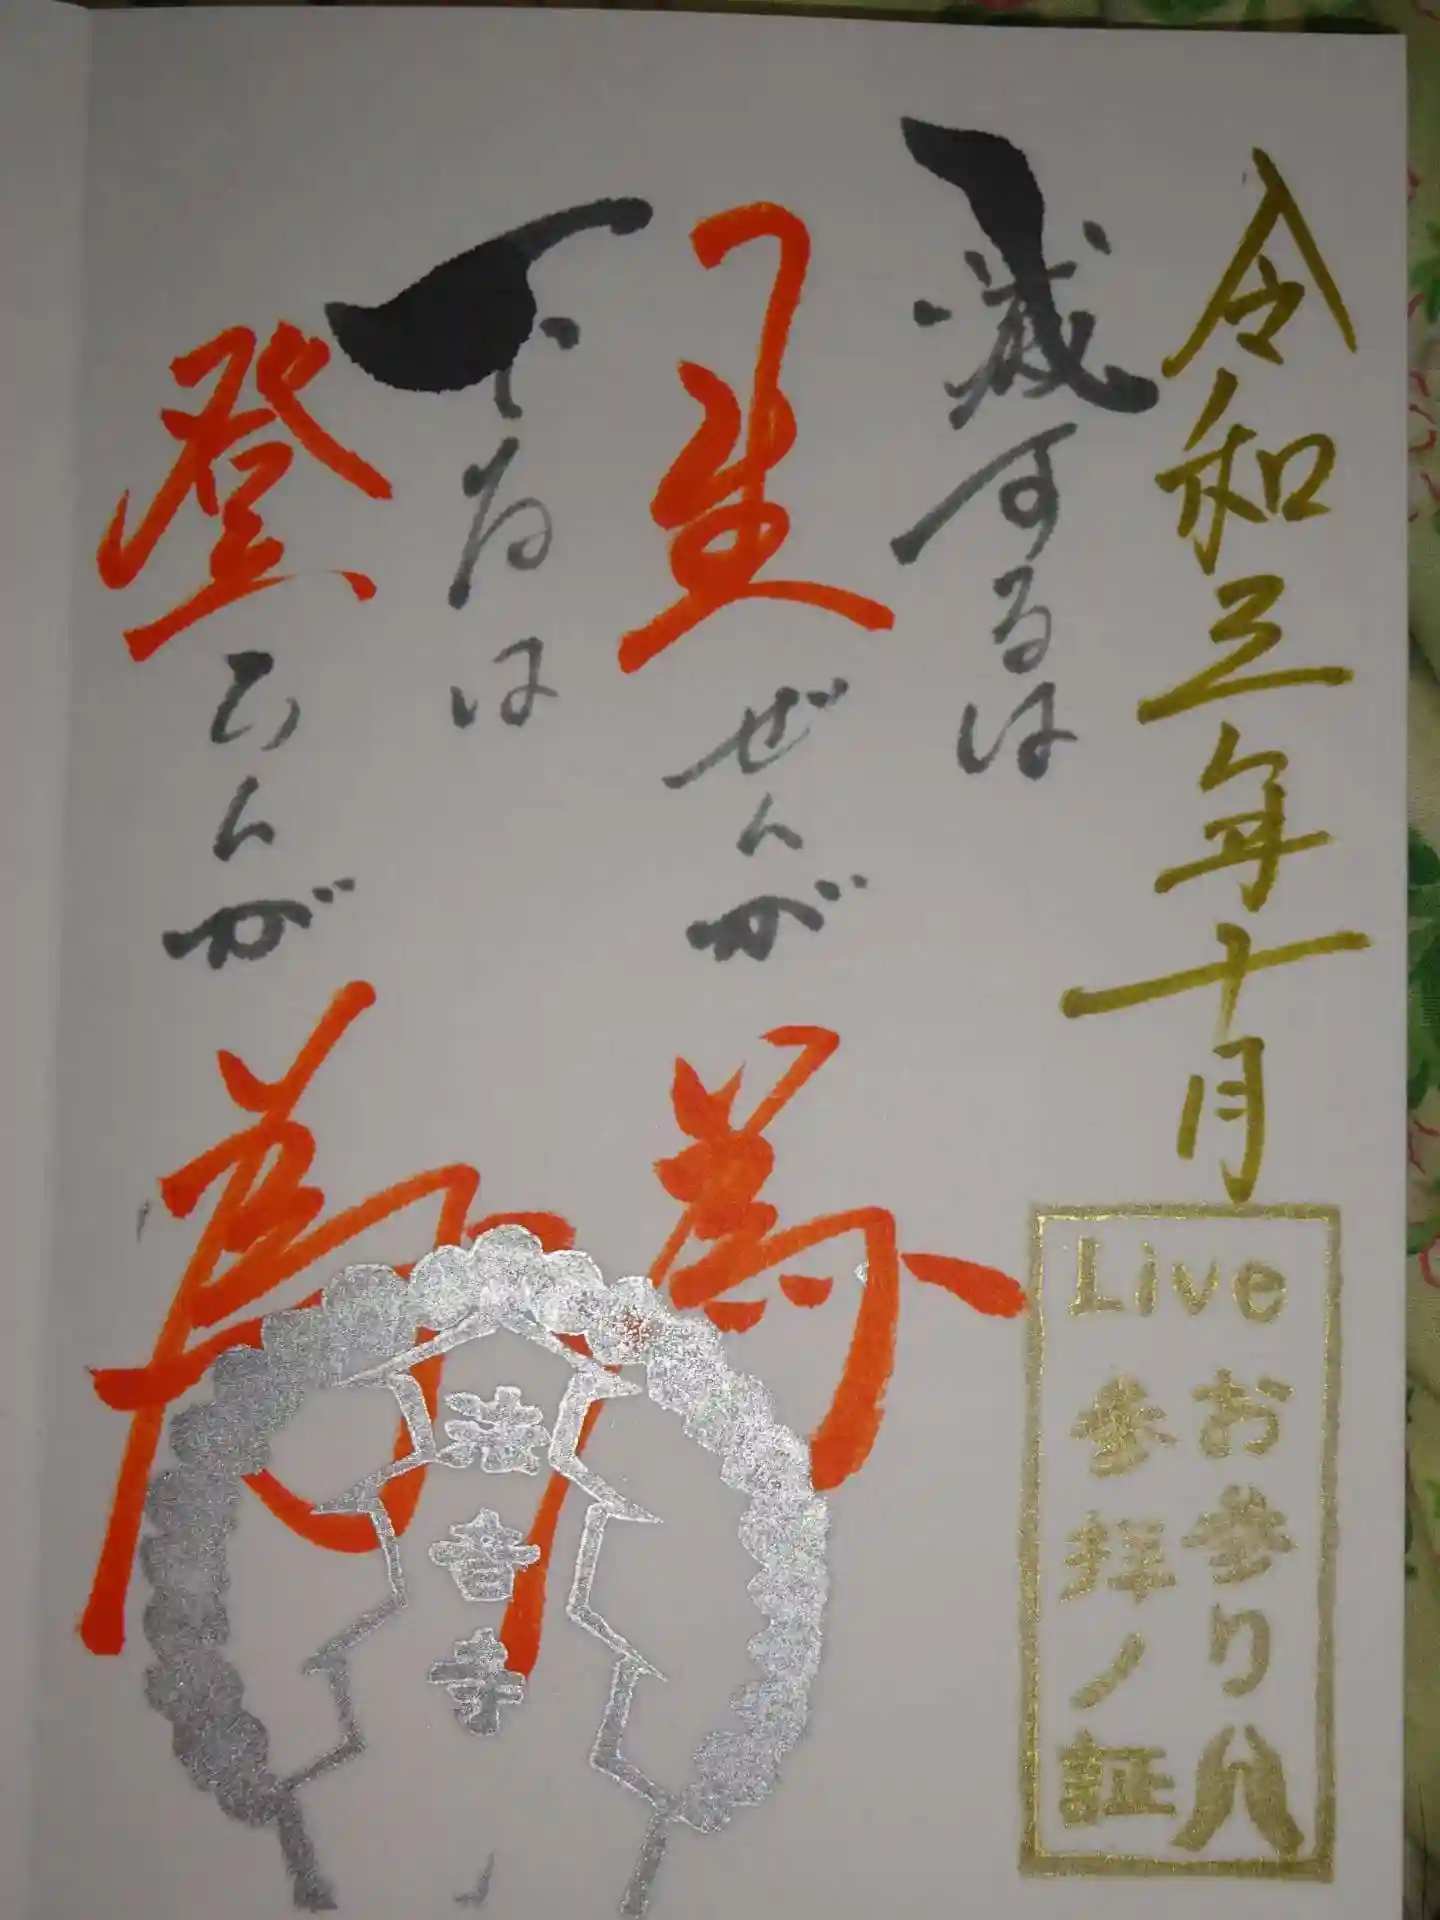 令和五年十月
滅するは
生ぜんが
為
下るは
登らんが
為
Liveお参り
参拝ノ証
法音寺